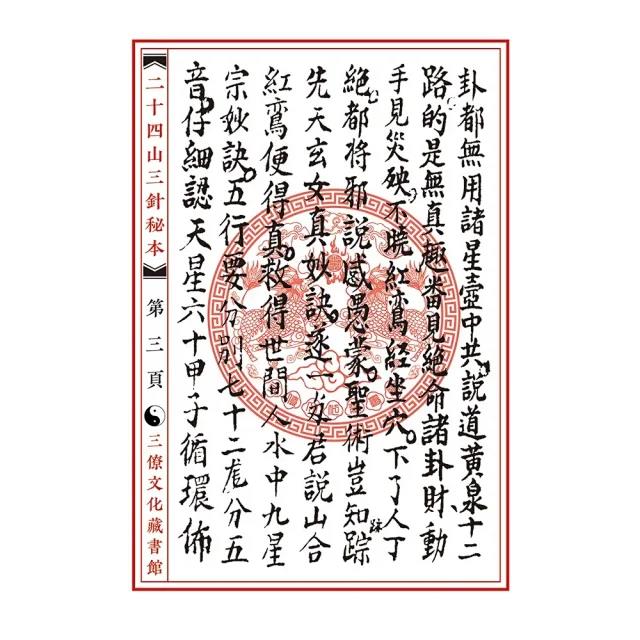 卦都無用諸星壺中共說道黃泉十二
路的是無真趣番見絕命諸卦財動
手見災殃不曉紅鸞經坐穴下了人丁
絕都將邪說惑愚蒙聖術豈知踪
跡
先天玄女真妙訣逐一分君說山合
紅鸞便得真救得世間人水中九星
宗妙訣五行要分別七十二龍分五
音仔細認天星六十甲子循環佈
二十四山三針秘本
第三頁
三僚文化藏書館